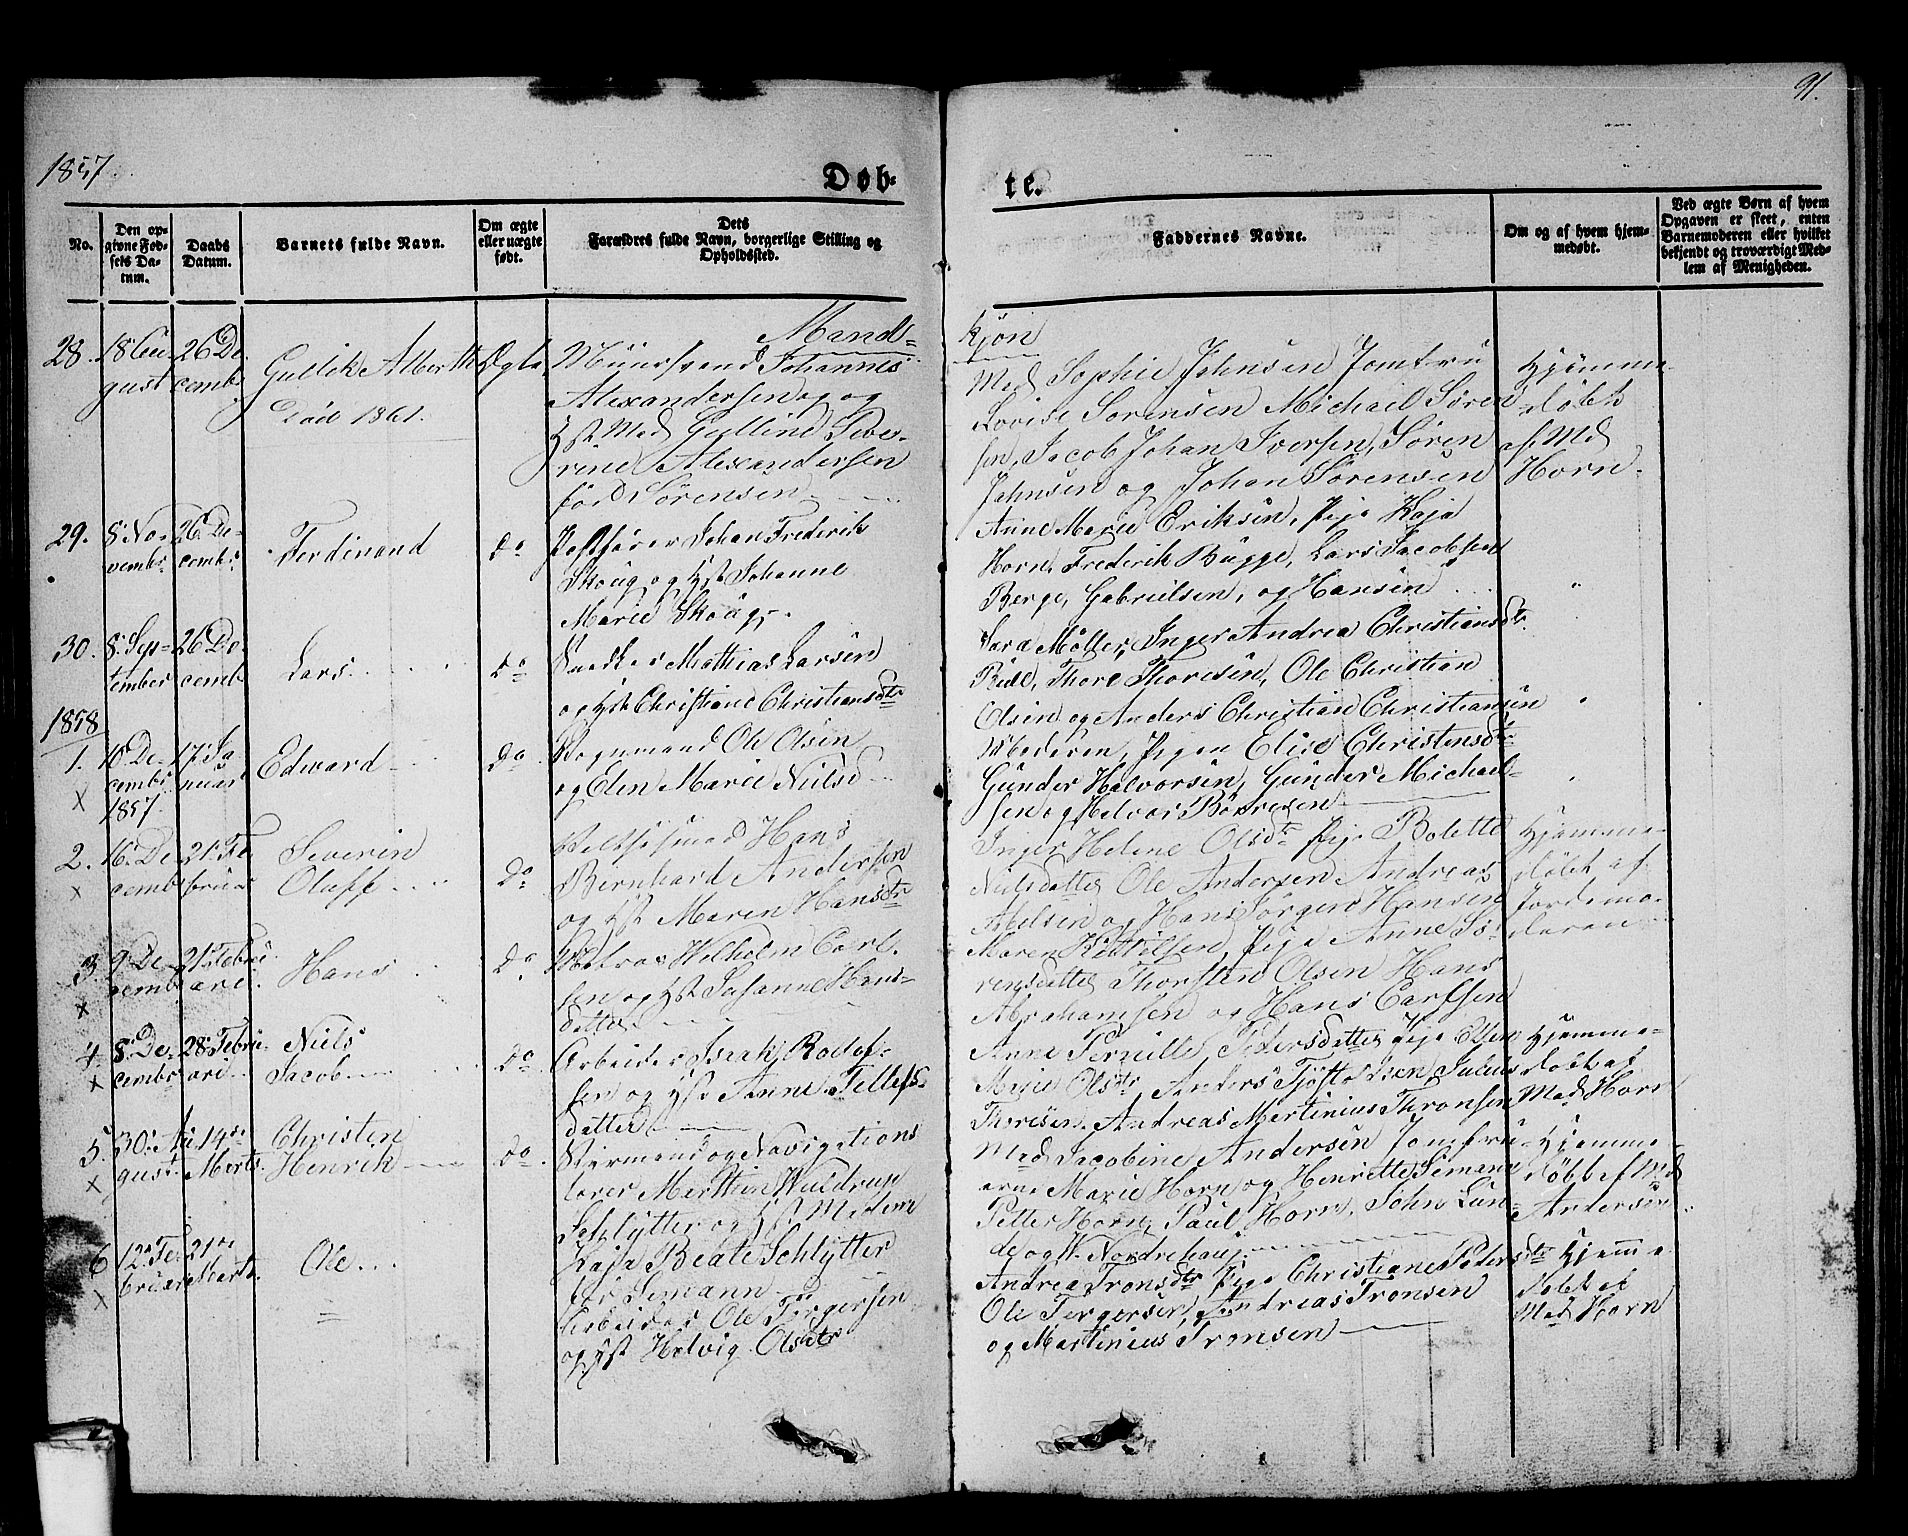 91.
1857
Døb-
te.
No.
Den op-
givne Fød-
sels Da-
tum.
Daabs
Datum.
Barnets fulde Navn.
Om ægte
eller uægte
født.
Dets
Forældres fulde Navn, borgerlige Stilling og
Opholdssted.
Faddernes Navne.
Om og af hvem hjem-
medøbt.
Ved ægte Børn af hvem
Opgaven er skeet, enten
Barnemoderen eller hvilket
bekjendt og troværdigt Med-
lem af Menigheden.
Mands-
kjøn
28.
18 Au-
gust
26 De-
cembr
Gullik Alberth
Død 1861.
Ægte
Muursvend Johannes
Alexandersen og
Hst. Mad Gulline Seve-
rine Alexandersen
fød Sørensen
Mad Sophie Johnsen Jomfru
Lovise Sørensen Michail Søren-
sen, Jacob Johan Iversen, Søren
Johnsen og Johan Sørensen
Hjemme-
døbt
af Md
Horn.
29.
8 No-
vembr
26 De-
cembr
Ferdinand
Do
Postfører Johan Frederik
Skoug og Hst Johanne
Marie Skoug.
Anne Marie Eriksen, Pige Kaja
Horn, Frederik Bugge, Lars Jacobsen
Berge, Gabrielsen, og Hansen
"
30.
8 Sep-
tember
26 De-
cemb
Lars
Do
Mathias Larsen
og Hst Christiane Christiansdtr
Sara Møller, Inger Andrea Christiansdtr
Thore Thoresen, Ole Christian
Olsen og Anders Christian Christiansen
"
1858
1.
10 De-
cembr
1857
17 Ja
nuar
Edward
Do
Ole Olsen
og Elen Marie Nielsd
Moderen, Pigen Elise Christensdtr
Gunder Halvorsen, Gunder Michael-
sen og Helvor Børresen
"
2.
x
16 De-
cembr
21 Fe-
bruar
Severin
Oluff
Do
Hans
Bernhard Andersen
og Hst Maren Hansdtr
Inger Helene Olsdtr Pige Bolette
Nielsdatter Ole Andersen Andreas
Nielsen og Hans Jørgen Hansen
Hjemme-
døbt af
Jordemo-
deren
3.
x
9 De-
cembr
21 Febru-
ari.
Hans
Do
Matros Wilhelm Carl-
sen og Hst Susanne Hans-
datter
Maren Kittilsen, Pige Anne Sø-
rensdatter Thorsten Olsen Hans
Abrahamsen og Hans Carlsen
4.
x
8 De-
cembr
28 Febru-
ari
Niels
Jacob
Do
Arbeider Isak Rodel-
sen og Hst Anne Tellefs-
datter
Anne Pernille Pedersdatter, Pige Elen
Marie Olsdtr Anders Tjøstolvsen, Julius
Thoresen, Andreas Martinius Thronsen
Hjemme-
døbt af
Mad Horn
5.
x
30 Au-
gust
14de
Marts.
Christen
Henrik
Do
Styrmand og Navigations
lærer Martin Wuldrup
Schlytter og Hst Madam
Kaja Beate Schlytter
før Semann
Mad Jacobine Andersen Jomfru-
erne Marie Horn og Henriette Semann
Petter Horn, Paul Horn, John Lun-
de og W. Nordrehaug
Hjemme-
døbt af Md
Andersen
6
x
12 Fe-
bruar
21de
Marts.
Ole
=
Arbeider Ole Tergersen
og Hst Helvig Olsdtr
Andrea Tronsdtr Pige Christiane Pedersdtr
Ole Tergersen, Andreas Tronsen
og Martinius Tronsen
Hjemme-
døbt af
Mad Horn